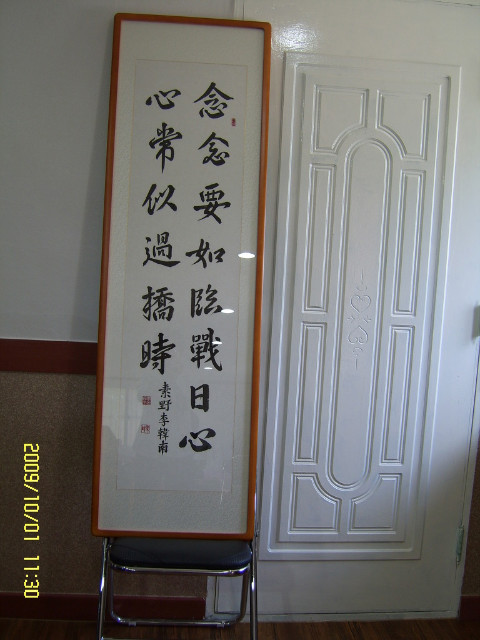 念念要如臨戰日心
心常似過橋時
素野李韓南
2009/10/01 11:30